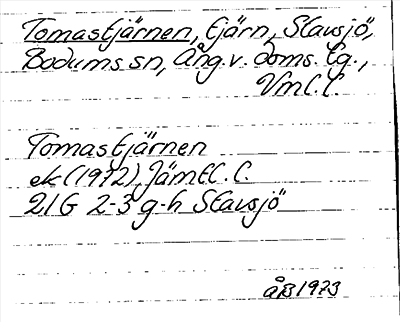 Tomastjärnen, tjärn, Stavsjö,
Bodums sn, Ång. v. doms. tg.,
Vnl. l.
Tomastjärnen
ek (1972) Jämtl. l.
21G 2-3 g-h Stavsjö
ÅB 1973